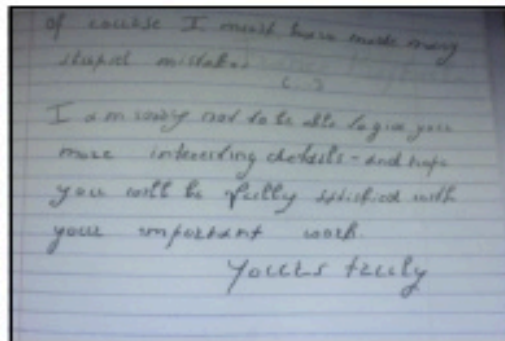 of course I must have made many
stupid mistakes
(...)
I am sorry not to be able to give you
more interesting details - and hope
you will be fully satisfied with
your important work.
Yours truly